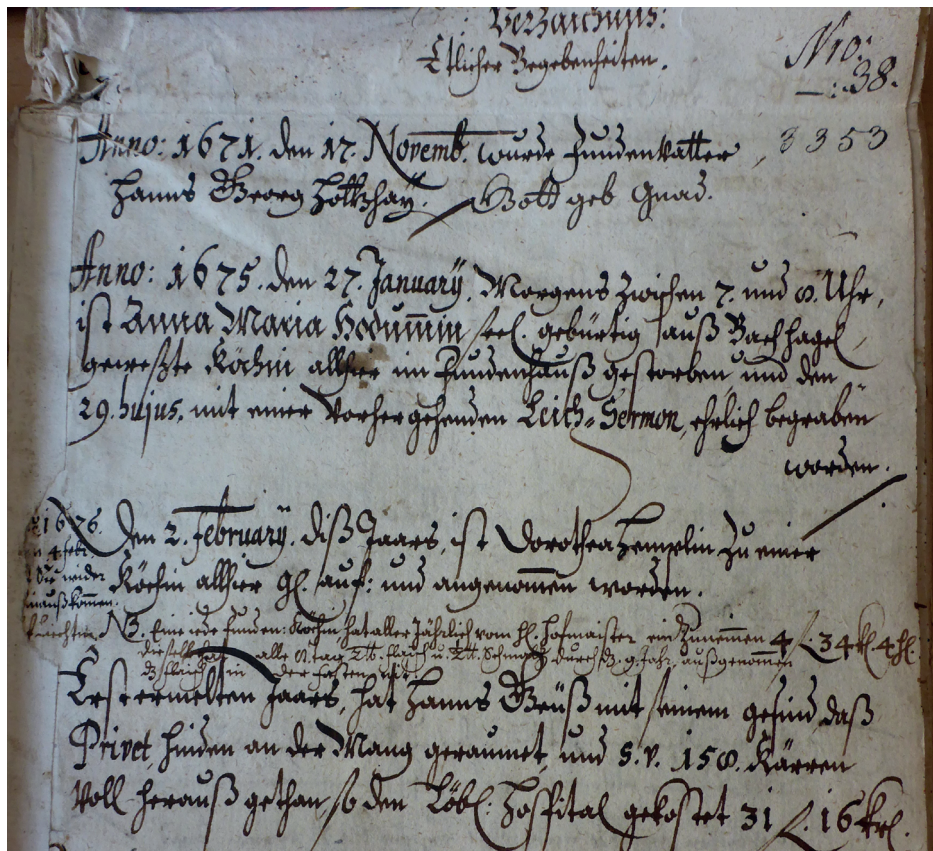 Verzaichnus:
Etlicher Begebenheiten.
Nro:
38.
Anno: 1671. den 17. Novemb. wurde Fundenvatter
8353
Hanns Georg Holtzhay. Gott geb Gnad.
Anno: 1675. den 27. January. Morgens zwischen 7. und 8. Uhr,
ist Anna Maria seel. gebürtig auß Bachhagel,
geweßte Köchin allhier im Fundenhauß gestorben, und den
29. hujus. mit einer Vorhergehenden Leich-Sermon, ehrlich begraben
worden.
1676.
4. febr.
Sie wider
hinauß kommen.
Den 2. February. diß Jaars, ist Dorothea Hemplin zu einer
Köchin allhier gl. auf: und angenommen worden.
NB. Eine iede Funden: Köchin hat aller Jährlich vom H. Hofmaister einzunemmen 4 f. 34 kl. 4 hl.
alle tag Fleisch u. Schmaltz durch Jahr, außgenommen
in der Fasten
Erstermelten Jaars, hat Hanns Geüß mit seinem gesind, daß
Privet hinden an der Mang geraumet und s.v. 158. Kärren
voll herauß gethan, so den Löbl. Hospital gekostet 31 f. 16 krl.